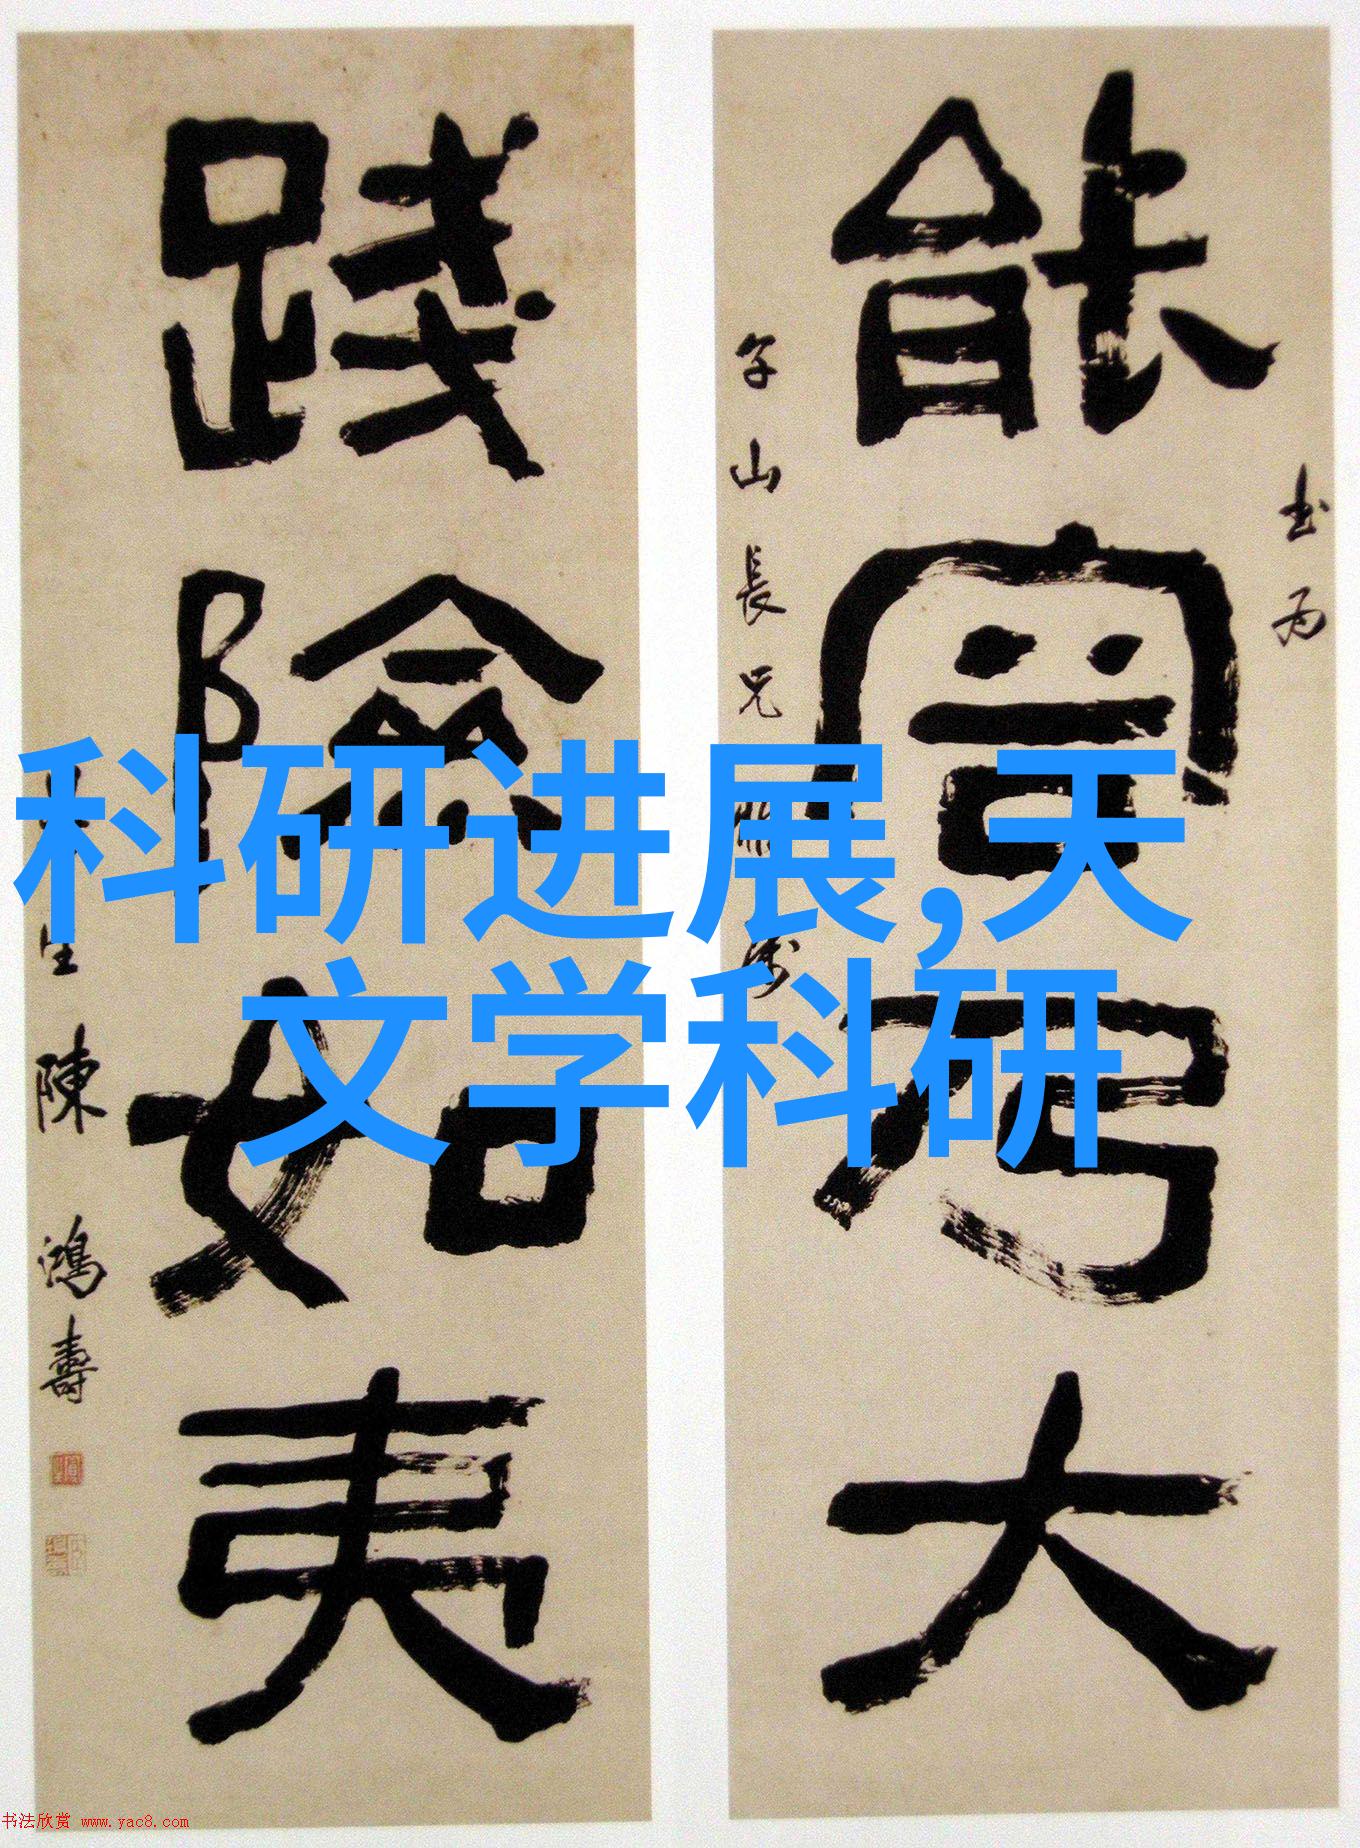 科研进展,天
文学科研
書為
能乃大
山長兄
踐險如夷
生陳鴻壽
书法欣赏 www.yac8.com